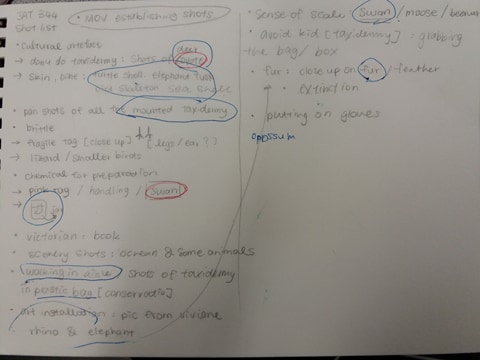 SAT 344
Shot list
• MOV establishing shots
• Cultural artefact
deer
→ dony do taxidermy: shots of
→ skin, bone: turtle shell elephant tusk
bird skeleton sea shells
• pan shots of all the mounted taxidermy
• brittle
→ fragile tag [close up] [legs/ear ?]
→ lizard / smaller birds
• chemical for preparation
→ tag / handling / swan
→
• victorian: book
• scenery shots: ocean & some animals
• walking in aisle shots of taxidermy
in plastic bag [conservation]
• art installation: pic from viviane
rhino & elephant
• sense of scale swan / moose / 
• avoid kid [taxidermy] = grabbing
the bag / box
• fur = close up on fur / feather
• extinction
• putting on gloves
opossum